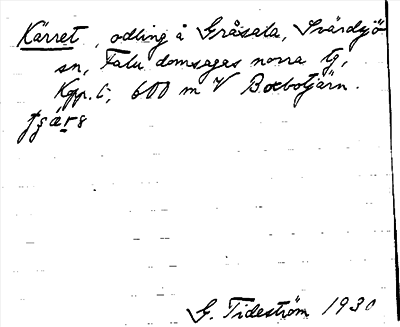 Kärret, odling å Gråsala, Svärdsjö
sn, Falu domsagas norra tg,
Kopp. l., 600 m V Boxbotjärn.
G. Tideström 1930